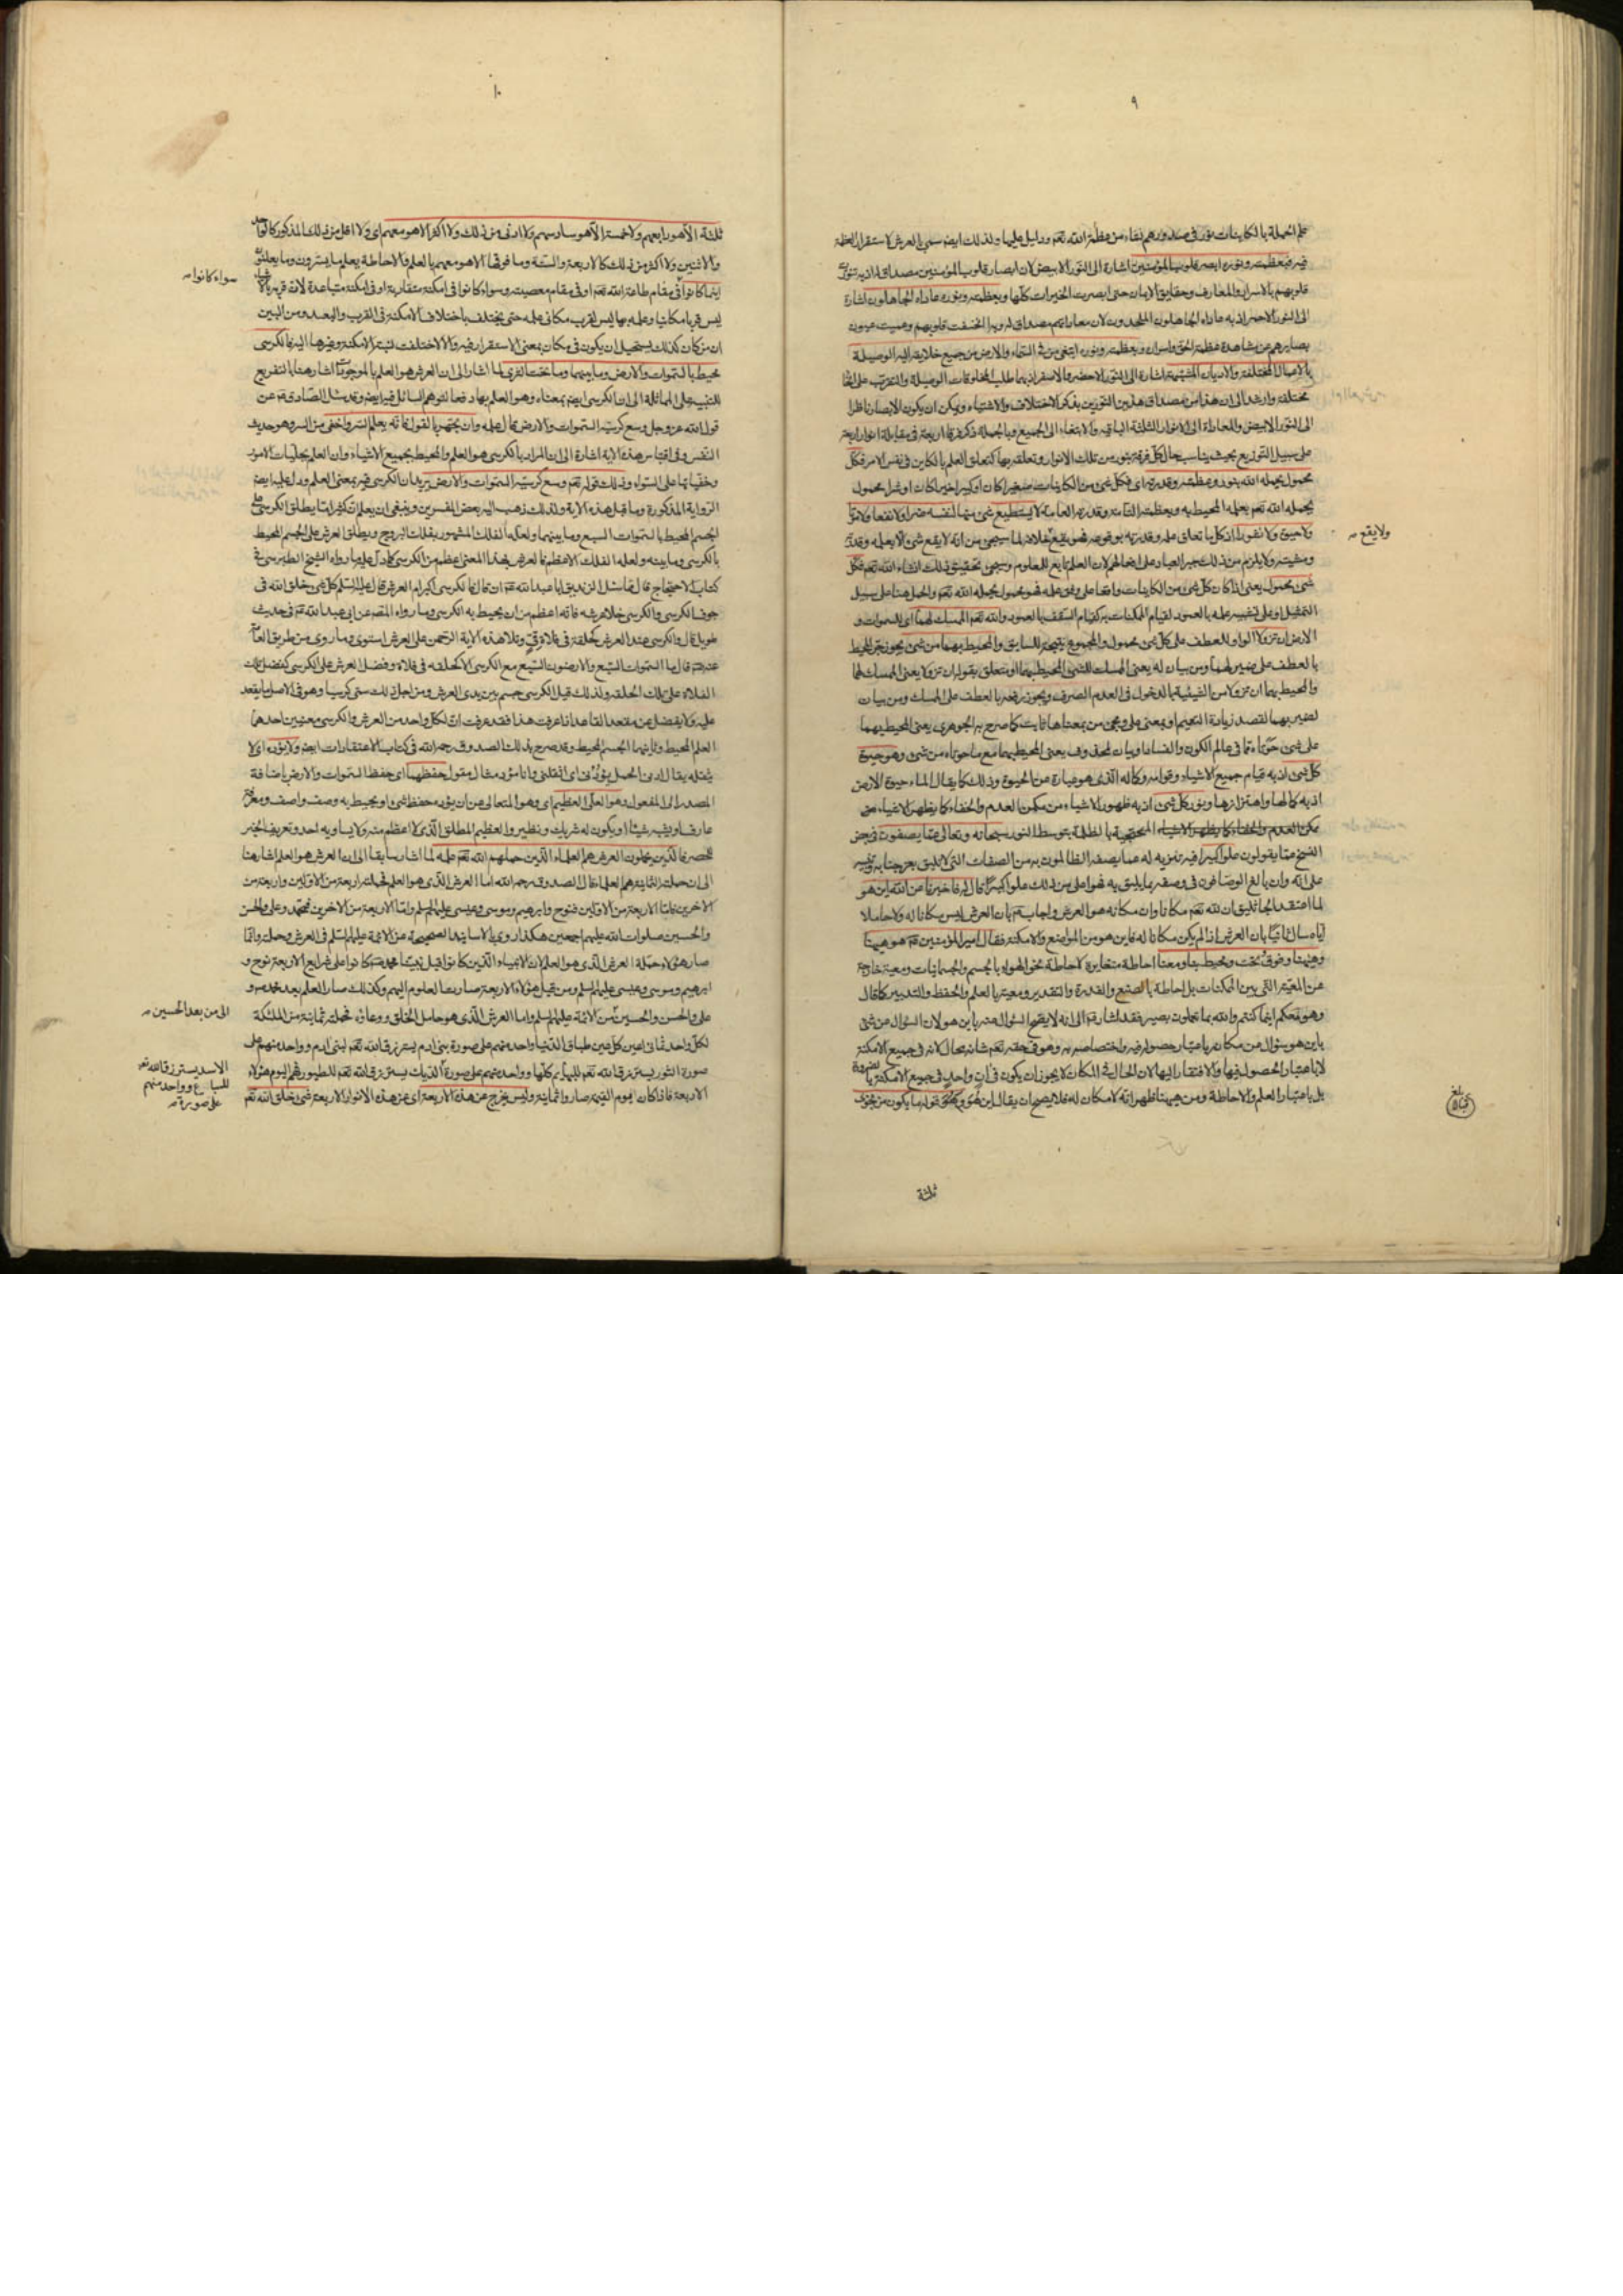 ٩
علم الحملة بالكاينات نور فى صدورهم نشاء من عظمة الله تعم ودليل عليها ولذلك ايضا سمى بالعرش لاستقرار العظمة
فيه فبعظمته ونوره ابصر قلوب المؤمنين اشارة الى النور الابيض لان ابصار قلوب المؤمنين مصداق له اذ به تنورت
قلوبهم بالاسرار والمعارف وحقايق الايمان حتى ابصرت الخيرات كلها وبعظمته ونوره عاداه الجاهلون اشارة
الى النور الاحمر اذ به عاداه الجاهلون الملحدون لان معاداتهم مصداق له وبه انخسفت قلوبهم وعميت عيون
بصايرهم عن مشاهدة عظمة الحق واسراره وبعظمته ونوره ابتغى من فى السماء والارض من جميع خلايقه اليه الوسيلة
بالاعمال المختلفة والاديان المشتبهة اشارة الى النور الاخضر والاصفر اذ بهما طلب المخلوقات الوسيلة والتقرب على انحاء
مختلفة وارشد الى ان هذا من مصداق هذين النورين بذكر الاختلاف والاشتباه ويمكن ان يكون الابصار ناظرا
الى النور الابيض والمعاداة الى الانوار الثلثة الباقية والابتغاء الى الجميع وبالجملة ذكر فرقا اربعة فى مقابلة انوار اربعة
على سبيل التوزيع بحيث يناسب حال كل فرقة بنور من تلك الانوار وتعلقه بها كتعلق العلم بالكاين فى نفس الامر فكل
محمول يحمله الله بنوره وعظمته وقدرته اى فكل شئ من الكاينات صغيرا كان او كبيرا خيرا كان او شرا محمول
يحمله الله تعم بعلمه المحيط به وبعظمته التامة وقدرته العامة لا يستطيع شئ منها لنفسه ضرا ولا نفعا ولا موتا
ولا حيوة ولا نشورا اذ كل ما تعلق علمه وقدرته بوقوعه فهو يقع خلافه لما سيجئ من انه لا يقع شئ الا بعلمه وقدرته
ولا يقع صح
ومشيته ولا يلزم من ذلك جبر العباد على افعالهم لان العلم تابع للمعلوم وسيجئ تحقيق ذلك انشاء الله تعم فكل
شئ محمول يعنى اذا كان كل شئ من الكاينات واقعا على وفق علمه فهو محمول يحمله الله تعم والحمل هنا على سبيل
التمثيل وعلى تشبيه علمه بالعمود لقيام الممكنات به كقيام السقف بالعمود والله تعم الممسك لهما اى للسموات و
الارض ان تزولا الواو للعطف على كل شئ محمول والمجموع نتيجة للسابق والمحيط بهما من شئ يجوز جر المحيط
بالعطف على ضمير لهما ومن بيان له يعنى الممسك للشئ المحيط بهما او متعلق بقوله ان تزولا يعنى الممسك لهما
والمحيط بهما ان تزولا من الشيئية بالدخول فى العدم الصرف ويجوز رفعه بالعطف على الممسك ومن بيان
لضمير بهما لقصد زيادة التعميم او بمعنى على ومجئ من بمعناها ثابت كما صرح به الجوهرى يعنى المحيط بهما
على شئ حوتاه مما فى عالم الكون والفساد او بيان لمحذوف يعنى المحيط بهما مع ما حوتاه من شئ وهو حيوة
كل شئ اذ به قيام جميع الاشياء وقوامه وكماله الذى هو عبارة عن الحيوة وذلك كما يقال الماء حيوة الارض
اذ به كمالها واهتزازها ونور كل شئ اذ به ظهور الاشياء من مكمن العدم والخفاء كما يظهر الاشياء من
مكمن العدم والخفاء كما يظهر الاشياء المحتجبة بالظلمة بتوسط النور سبحانه وتعالى عما يصفون فى بعض
النسخ عما يقولون علوا كبيرا فيه تنزيه له عما يصفه الظالمون به من الصفات التى لا تليق بعز جنابه وتنبيه
على انه وان بالغ الوصافون فى وصفه بما يليق به فهو اعلى من ذلك علوا كبيرا قال له فاخبرنى عن الله اين هو
لما اعتقد الجاثليق ان لله تعم مكانا وان مكانه هو العرش واجابه عم بان العرش ليس مكانا له ولا حاملا
اياه سال ثانيا بان العرش اذا لم يكن مكانا له فاين هو من المواضع والامكنة فقال امير المؤمنين عم هو هيهنا
وهيهنا وفوق وتحت ومحيط بنا ومعنا احاطة مغايرة لاحاطة نحو الهواء بالجسم والجسمانيات ومعية خارجة
عن المعية التى بين الممكنات بل احاطة بالصنع والقدرة والتقدير ومعية بالعلم والحفظ والتدبير كما قال
وهو معكم اينما كنتم والله بما تعملون بصير فقد اشار عم الى انه لا يصح السؤال عنه باين هو لان السؤال عن شئ
باين هو سؤال عن مكانه باعتبار حصوله فيه واختصاصه به وهو فى حقه تعم شانه محال لانه فى جميع الامكنة
لا باعتبار الحصول فيها والافتقار اليها لان الحال فى المكان لا يجوز ان يكون فى ان واحد فى جميع الامكنة بالضرورة
بل باعتبار العلم والاحاطة ومن هيهنا ظهر انه لا مكان له فلا يصح ان يقال اين هو وكذا قوله ما يكون من نجوى
بلغ
ثلثة
١٠
ثلثة الا هو رابعهم ولا خمسة الا هو سادسهم ولا ادنى من ذلك ولا اكثر الا هو معهم اى ولا اقل من ذلك المذكور كالواحد
والاثنين ولا اكثر من ذلك كالاربعة والستة وما فوقها الا هو معهم بالعلم والاحاطة يعلم ما يسترون وما يعلنون
اينما كانوا فى مقام طاعة الله تعم او فى مقام معصيته وسواء كانوا فى امكنة متقاربة او فى امكنة متباعدة لان قربه بالاشياء
سواء كانوا صح
ليس قربا مكانيا وعلمه بها ليس لقرب مكانى علمه حتى يختلف باختلاف الامكنة فى القرب والبعد ومن البين
ان من كان كذلك يستحيل ان يكون فى مكان بمعنى الاستقرار فيه والا لاختلفت نسبة الامكنة وغيرها اليه فالكرسى
محيط بالسموات والارض وما بينهما وما تحت الثرى لما اشار الى ان العرش هو العلم بالموجودات اشار هنا بالتفريع
للتنبيه على المماثلة الى ان الكرسى ايضا بمعناه وهو العلم بها دفعا لتوهم السائل فيه ايضا وقد سئل الصادق عم عن
قول الله عز وجل وسع كرسيه السموات والارض قال علمه وان تجهر بالقول فانه يعلم السر واخفى من السر وهو حديث
النفس وفى اقتباس هذه الاية اشارة الى ان المراد بالكرسى هو العلم والمحيط بجميع الاشياء وان العلم بجليات الامور
وخفياتها على السواء وذلك قوله تعم وسع كرسيه السموات والارض يريد ان الكرسى فيه بمعنى العلم ودل عليه ايضا
الرواية المذكورة وما قبل هذه الاية ولذلك ذهب اليه بعض المفسرين وينبغى ان يعلم انه كثيرا ما يطلق الكرسى على
الجسم المحيط بالسموات السبع وما بينهما ولعله الفلك المشهور بفلك البروج ويطلق العرش على الجسم المحيط
بالكرسى وما بينه ولعله الفلك الاعظم فالعرش بهذا المعنى اعظم من الكرسى كما دل عليه ما رواه الشيخ الطبرسى فى
كتاب الاحتجاج قال فما سئل الزنديق ابا عبد الله عم ان قال فالكرسى اكبر ام العرش قال عليه السلم كل شئ خلق الله فى
جوف الكرسى والكرسى خلا عرشه فانه اعظم من ان يحيط به الكرسى وما رواه المصه عن ابى عبد الله عم فى حديث
طويل قال والكرسى عند العرش كحلقة فى فلاة قى وتلا هذه الاية الرحمن على العرش استوى وما روى من طريق العامة
عنه عم قال ما السموات السبع والارضون السبع مع الكرسى الا كحلقة فى فلاة وفضل العرش على الكرسى كفضل تلك
الفلاة على تلك الحلقة ولذلك قيل الكرسى جسم بين يدى العرش ومن اجل ذلك سمى كرسيا وهو فى الاصل ما يقعد
عليه ولا يفضل عن مقعد القاعد اذا عرفت هذا فقد عرفت ان لكل واحد من العرش والكرسى معنيين احدهما
العلم المحيط وثانيهما الجسم المحيط وقد صرح بذلك الصدوق رحمه الله فى كتاب الاعتقادات ايضا ولا يؤده اى لا
يثقله يقال ادنى الحمل يؤدنى اى اثقلنى وانا مؤد مثال مقول حفظهما اى حفظ السموات والارض باضافة
المصدر الى المفعول وهو العلى العظيم اى وهو المتعالى عن ان يؤده حفظ شئ او يحيط به وصف واصف ومعرفة
عارف او يشبه شيئا او يكون له شريك ونظير والعظيم المطلق الذى لا اعظم منه ولا يساويه احد وتعريف الخبر
للحصر فالذين يحملون العرش هم العلماء الذين حملهم الله تعم علمه لما اشار سابقا الى ان العرش هو العلم اشار هنا
الى ان حملته الثمانية هم العلماء قال الصدوق رحمه الله اما العرش الذى هو العلم فحملته اربعة من الاولين واربعة من
الاخرين فاما الاربعة من الاولين فنوح وابرهيم وموسى وعيسى عليهم السلم واما الاربعة من الاخرين فمحمد وعلى والحسن
والحسين صلوات الله عليهم اجمعين هكذا روى بالاسانيد الصحيحة عن الائمة عليهم السلم فى العرش وحملته وانما
صار هؤلاء حملة العرش الذى هو العلم لان الانبياء الذين كانوا قبل نبينا محمد صم كانوا على شرايع الاربعة نوح و
ابرهيم وموسى وعيسى عليهم السلم ومن قبل هؤلاء الاربعة صارت العلوم اليهم وكذلك صار العلم بعد محمد و
على والحسن والحسين من الائمة عليهم السلم واما العرش الذى هو حامل الخلق ووعاؤه فحملته ثمانية من الملئكة
الى من بعد الحسين صح
لكل واحد ثمانى اعين كل عين طباق الدنيا واحد منهم على صورة بنى ادم يسترزق الله تعم لبنى ادم وواحد منهم على
صورة الثور يسترزق الله تعم للبهايم كلها وواحد منهم على صورة الديك يسترزق الله تعم للطيور فهم اليوم هؤلاء
الاسد يسترزق الله تعم
للسباع وواحد منهم
على صورة صح
الاربعة فاذا كان يوم القيمة صاروا ثمانية وليس يخرج عن هذه الاربعة اى عن هذه الانوار الاربعة شئ خلق الله تعم